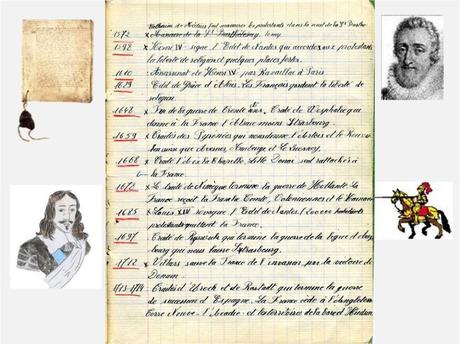 Catherine de Médicis fait massacrer les protestants dans la nuit de la St Barthé-
1572 x Massacre de la St Barthélemy. lemy
1598 x Henri IV signe l'Edit de Nantes qui accorde aux protestants
la liberté de religion et quelques places fortes.
1610 x Assassinat de Henri IV par Ravaillac à Paris
1629 Edit de Grâce d'Alès. Les Français gardent la liberté de
religion.
1648 x Fin de la guerre de Trente ans. Traité de Westphalie qui
donne à la France l'Alsace moins Strasbourg.
1659 x Traité des Pyrénées qui nous donne l'Artois et le Rous-
sillon ainsi que Avesnes, Maubeuge et Le Quesnoy.
1668 Traité d'Aix la Chapelle. Lille Douai sont rattachés à
la France.
1678 x Le traité de Nimègue termine la guerre de Hollande. La
France reçoit la Franche Comté, Valenciennes et le Hainaut
1685 x Louis XIV révoque l'Edit de Nantes. 100000 habitants
protestants quittent la France.
1697 Traité de Ryswick qui termine la guerre de la ligue d'Augs
bourg qui nous laisse Strasbourg.
1712 x Villars sauve la France de l'invasion par la victoire de
Denain.
1713-1714 Traités d'Utrech et de Rastadt qui termine la guerre
de succession d'Espagne. La France cède à l'Angleterre
Terre Neuve - l'Acadie - et la territoire de la baie d'Hudson